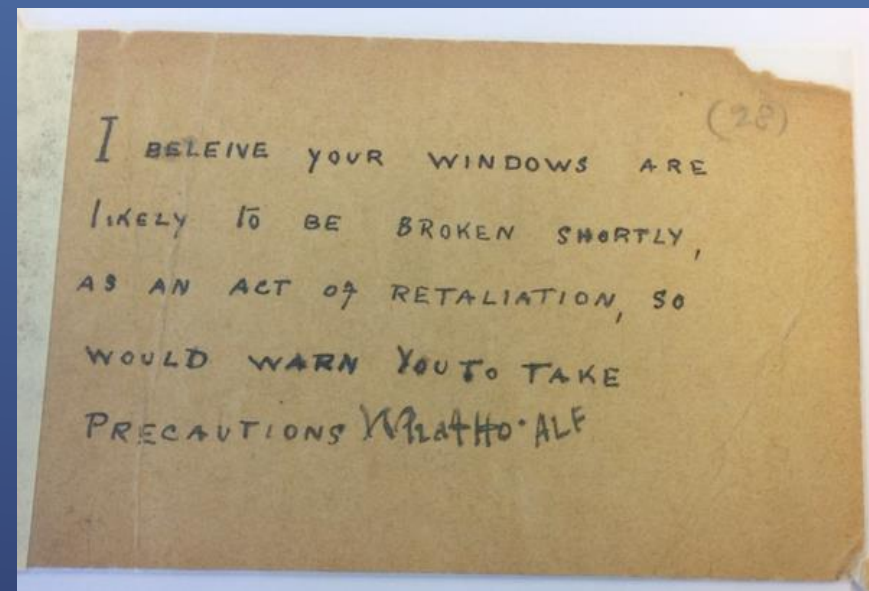 (28)
I BELEIVE YOUR WINDOWS ARE
LIKELY TO BE BROKEN SHORTLY,
AS AN ACT OF RETALIATION, SO
WOULD WARN YOU TO TAKE
PRECAUTIONS What HO. ALF